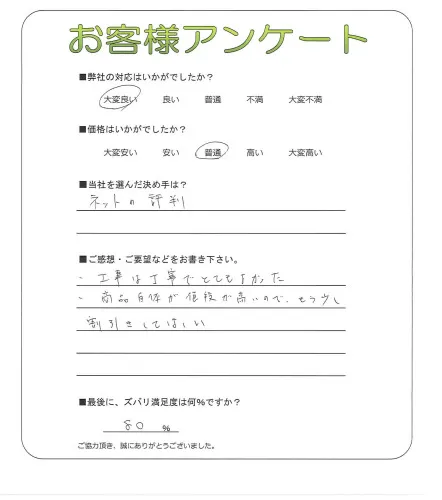 お客様アンケート
■弊社の対応はいかがでしたか？
大変良い 良い 普通 不満 大変不満
■価格はいかがでしたか？
大変安い 安い 普通 高い 大変高い
■当社を選んだ決め手は？
ネットの評判
■ご感想・ご要望などをお書き下さい。
・工事は丁寧でとてもよかった
・商品自体が値段が高いので、もう少し
割引きしてほしい
■最後に、ズバリ満足度は何%ですか？
80 %
ご協力頂き、誠にありがとうございました。